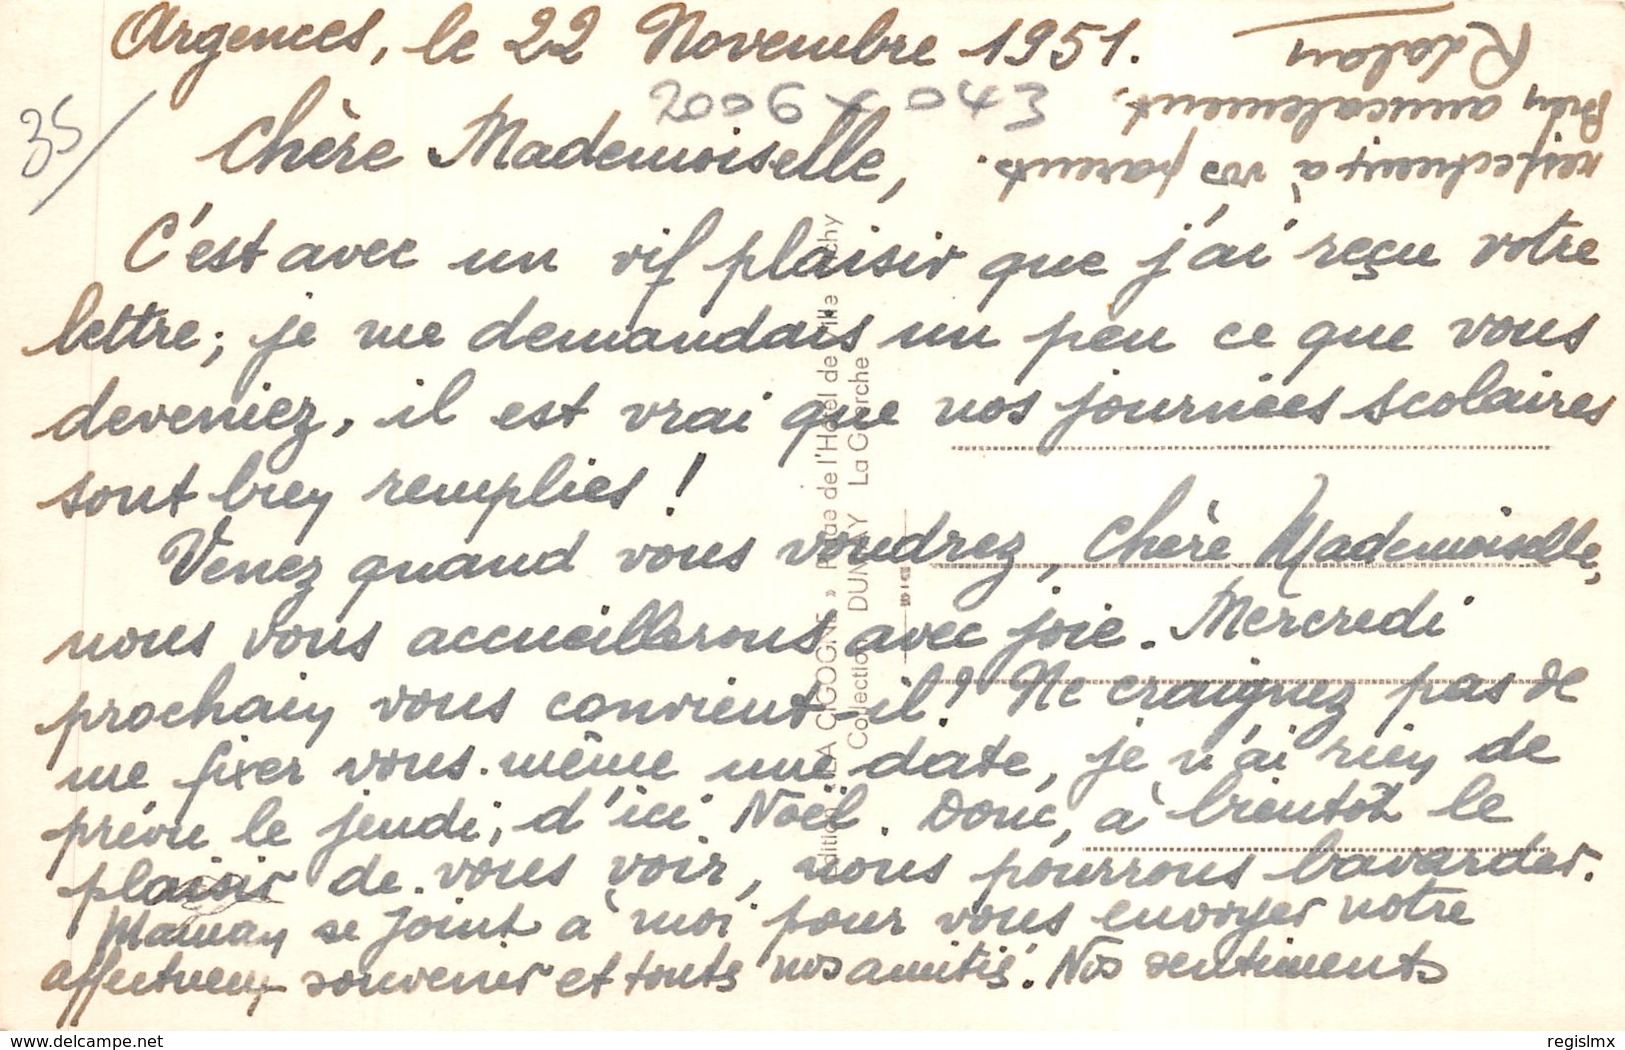 Argences, le 22 Novembre 1951.
2006 x 043
35/
Chère Mademoiselle,
C'est avec un vif plaisir que j'ai reçu votre
lettre; je me demandais un peu ce que vous
deveniez, il est vrai que nos journées scolaires
sont bien remplies !
Venez quand vous voudrez, Chère Mademoiselle,
nous vous accueillerons avec joie. Mercredi
prochain vous convient-il? Ne craignez pas de
me fixer vous-même une date, je n'ai rien de
prévu le jeudi, d'ici Noël. Donc, à bientôt le
plaisir de vous voir, nous pourrons bavarder.
Maman se joint à moi pour vous envoyer notre
affectueux souvenir et tous nos amitiés. Nos sentiments
respectueux à vos parents.
Bien amicalement.
Edition « LA CIGOGNE » Rue de l'Hôtel de Ville Vichy
Collection DUNAY La Guerche
delcampe.net
regislmx